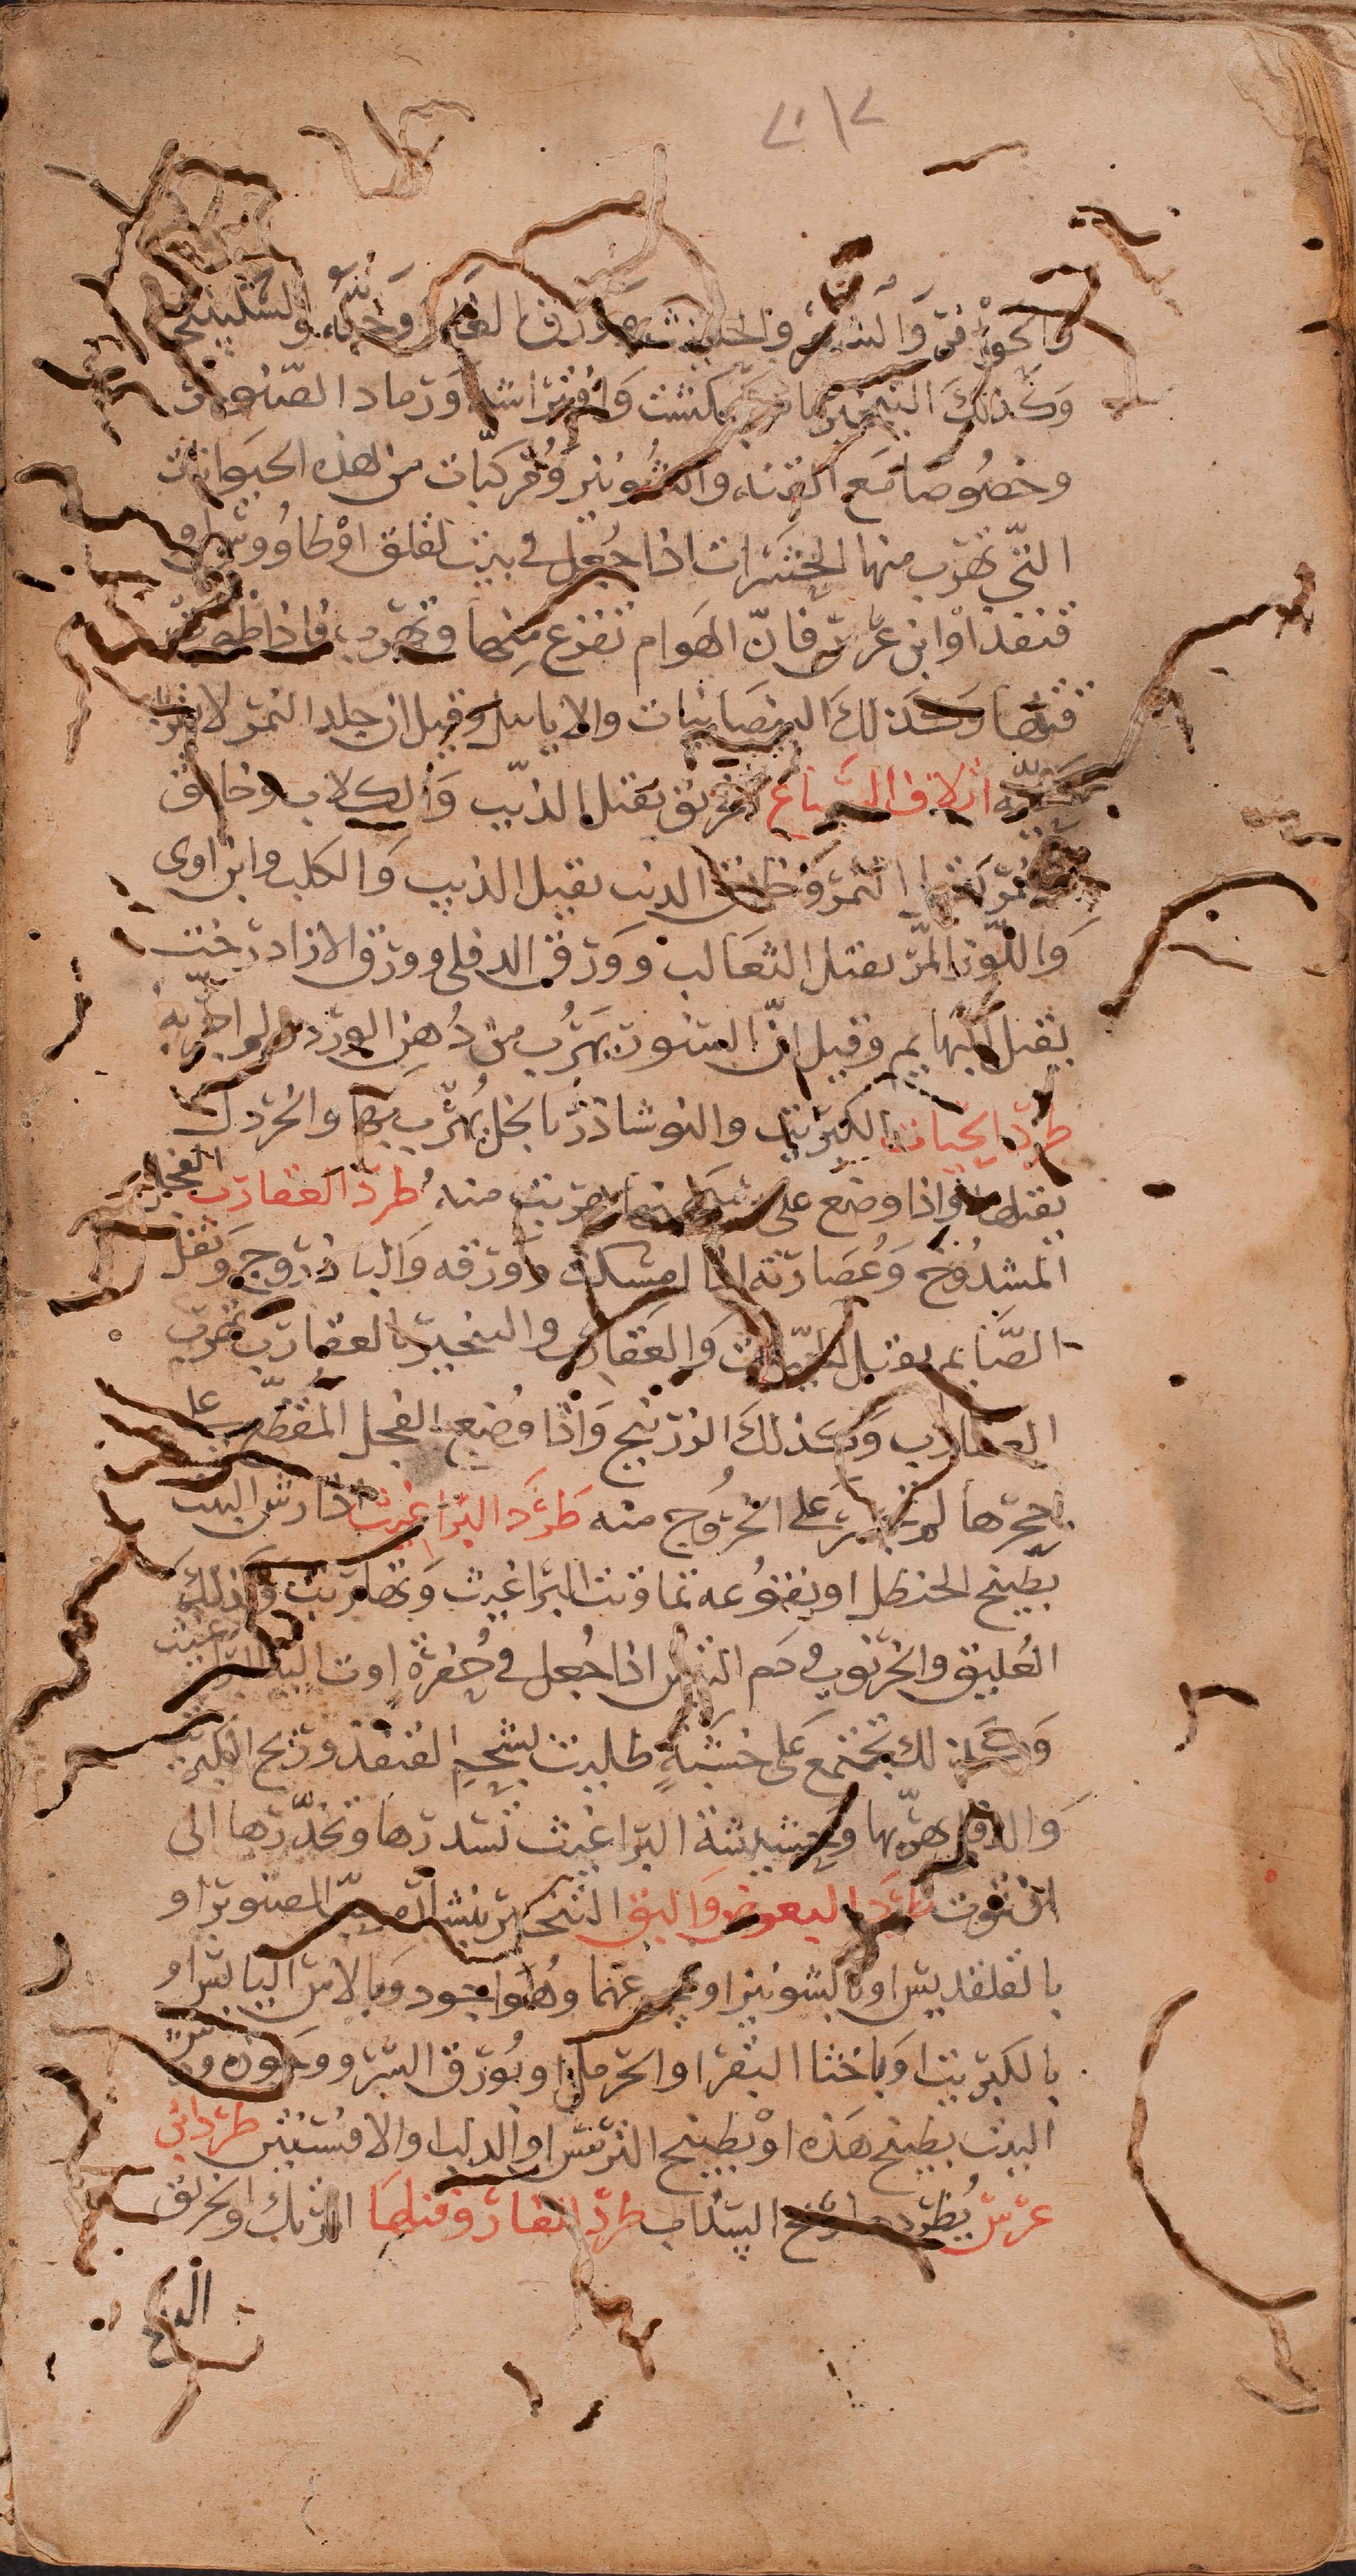 والحوافر والشعر والحلتيت وورق الغار وحبه والسكبينج
وكذلك التبخير بالفنجنكشت وافتراشه ورماد الصنوبر
وخصوصا مع القنه والشونيز ومركبات من هذه الحيوانات
التي تهرب منها الحشرات اذا جعل في بيت لقلق او طاووس او
قنفذ او ابن عرس فان الهوام تفزع منها وتهرب فاذا ظهرت
قتلها وكذلك البيضانيات والايايل وقيل ان جلد النمر لا
اتلاف السباع الخربق يقتل الذيب والكلاب وخانق
النمر يقتل النمر وخانق الذيب يقتل الذيب والكلب وابن اوى
واللوز المر يقتل الثعالب وورق الدفلى وورق الازادرخت
يقتل البهايم وقيل ان السنور يهرب من دهن الورد
طرد الحيات الكبريت والنوشاذر بالخل يهرب بها والخردل
يقتلها واذا وضع على هربت منه طرد العقارب الفجل
المشدوخ وعصارته اذا امسكت وورقه والباذروج وتفل
الصايم يقتل الحيات والعقارب والتبخير بالعقارب يهرب
العقارب وكذلك الزرنيخ واذا وضع الفجل المقطع على
جحرها لم تجسر على الخروج منه طرد البراغيث اذا رش البيت
بطبيخ الحنظل او نقوعه تماوتت البراغيث وتهاربت وكذلك
العليق والخرنوب ودم التيس اذا جعل في حفرة اوت اليه البراغيث
وكذلك تجتمع على خشبة طليت بشحم القنفذ وريح الكبريت
والدفلى يهربها وحشيشة البراغيث تسدرها وتخدرها الى
ان تموت طرد البعوض والبق التبخير بنشارة حب الصنوبر او
بالقلقديس او بالشونيز او بمجموعهما وهو اجود وبالاس اليابس او
بالكبريت او باخثا البقر او الحرمل او بورق السرو وجوزه ورش
البيت بطبيخ هذه او بطبيخ الترمس او الدلب والافسنتين طرد ابن
عرس يطرده ريح السذاب طرد الفار وقتلها المرتك والخربق